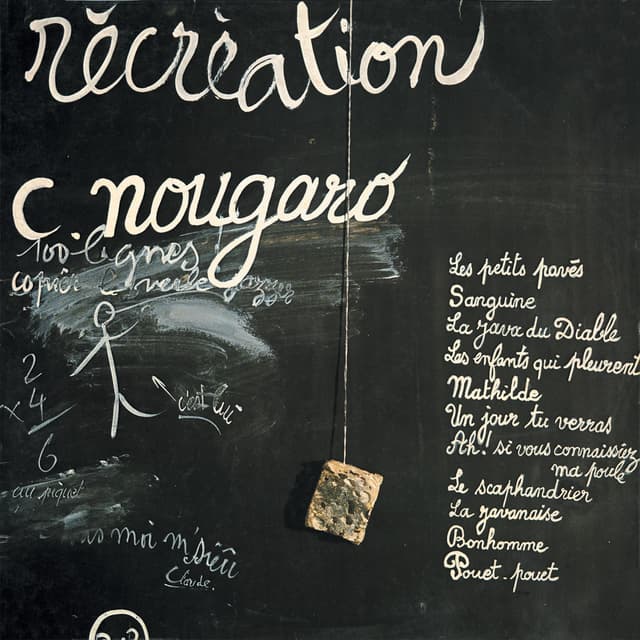 récréation
c. nougaro
100 lignes!
le verbe
2
x 4
6
c'est lui
au piquet
moi m'siëu
Claude.
Les petits pavés
Sanguine
La java du Diable
Les enfants qui pleurent
Mathilde
Un jour tu verras
Ah! si vous connaissiez
ma poule
Le scaphandrier
La javanaise
Bonhomme
Pouet-pouet